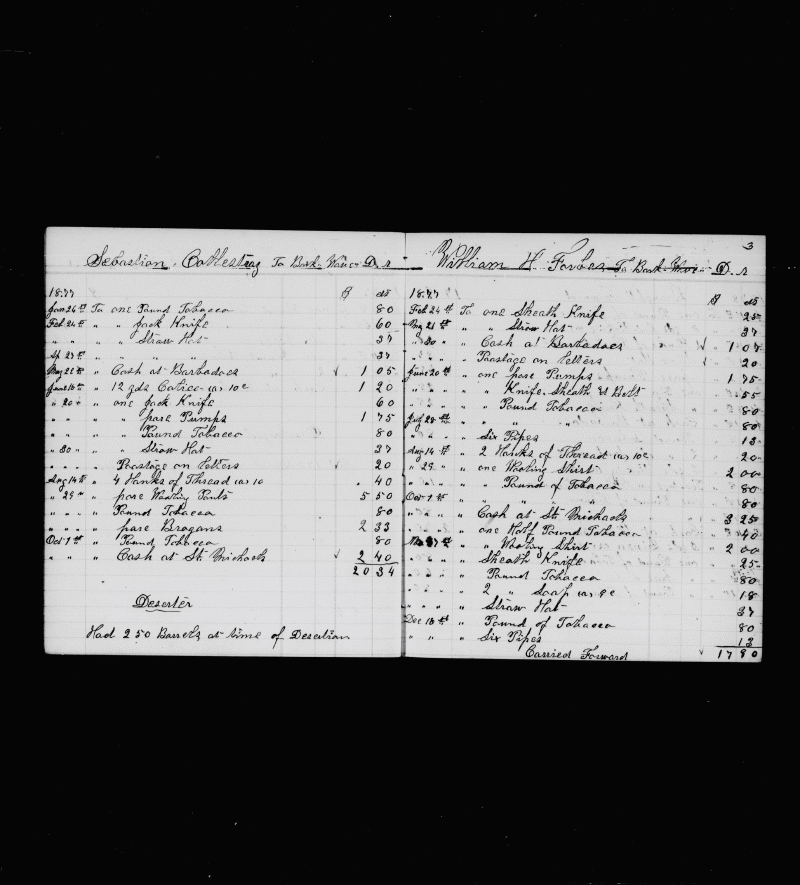 Sebastian To Bark Wave Dr
1877 $ cts
Jan 24th To one Pound Tobacco 80
Feb 24th " " Jack Knife 60
" " " " Straw Hat 37
Sp 27th " " " " 37
May 22th " Cash at Barbadoes √ 1 05
June 16th " 12 yds Calico as 10c 1 20
" 20 " " one Jack Knife 60
" " " " pare Pumps 1 75
" " " " Pound Tobacco 80
" 30 " " " Straw Hat 37
" " " " Poastage on letters √ 20
Aug 14th " 4 Hanks of Thread as 10 . 40
" 29 " " pare Wooling Pants 5 50
" " " " Pound Tobacco 80
" " " " pare Brogans 2 33
Oct 1st " Pound Tobacco 80
" " " Cash at St. Michaels √ 2 40
20 34
Deserter
Had 250 Barrels at time of Desertion
3
William H Forbes To Bark Wave Dr
1877 $ cts
Feb 24th To one Sheath Knife 25
May 21st " " Straw Hat 37
" 30 " " Cash at Barbadoes √ 1 07
" " " " Poastage on letters √ 20
June 20th " one pare Pumps 1 75
" " " " " Knife, Sheath & Belt 55
" " " " " Pound Tobacco 80
July 28th " " " " 80
" " " " Six Pipes 13
Aug 14th " 2 Hanks of Thread as 10c 20
" 29 " " one Wooling Shirt 2 00
" " " " " Pound of Tobacco 80
Oct 1st " " " " 80
" " " " Cash at St. Michaels √ 3 25
" " " " one Half Pound Tobacco 40
27th " " Wooling Shirt 2 00
" " " " Sheath Knife 25
" " " " Pound Tobacco 80
" " " " 2 " Soap as 9c 18
" " " " Straw Hat 37
Dec 16th " Pound of Tobacco 80
" " " Six Pipes 13
Carried Forward √ 17 90